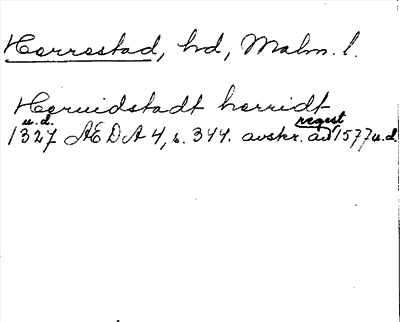 Herrestad, hd, Malm. l.
Heruidstadt herridt
u.d. regest
1327 ÆDA 4, s. 344. avskr. av 1577 u.d.